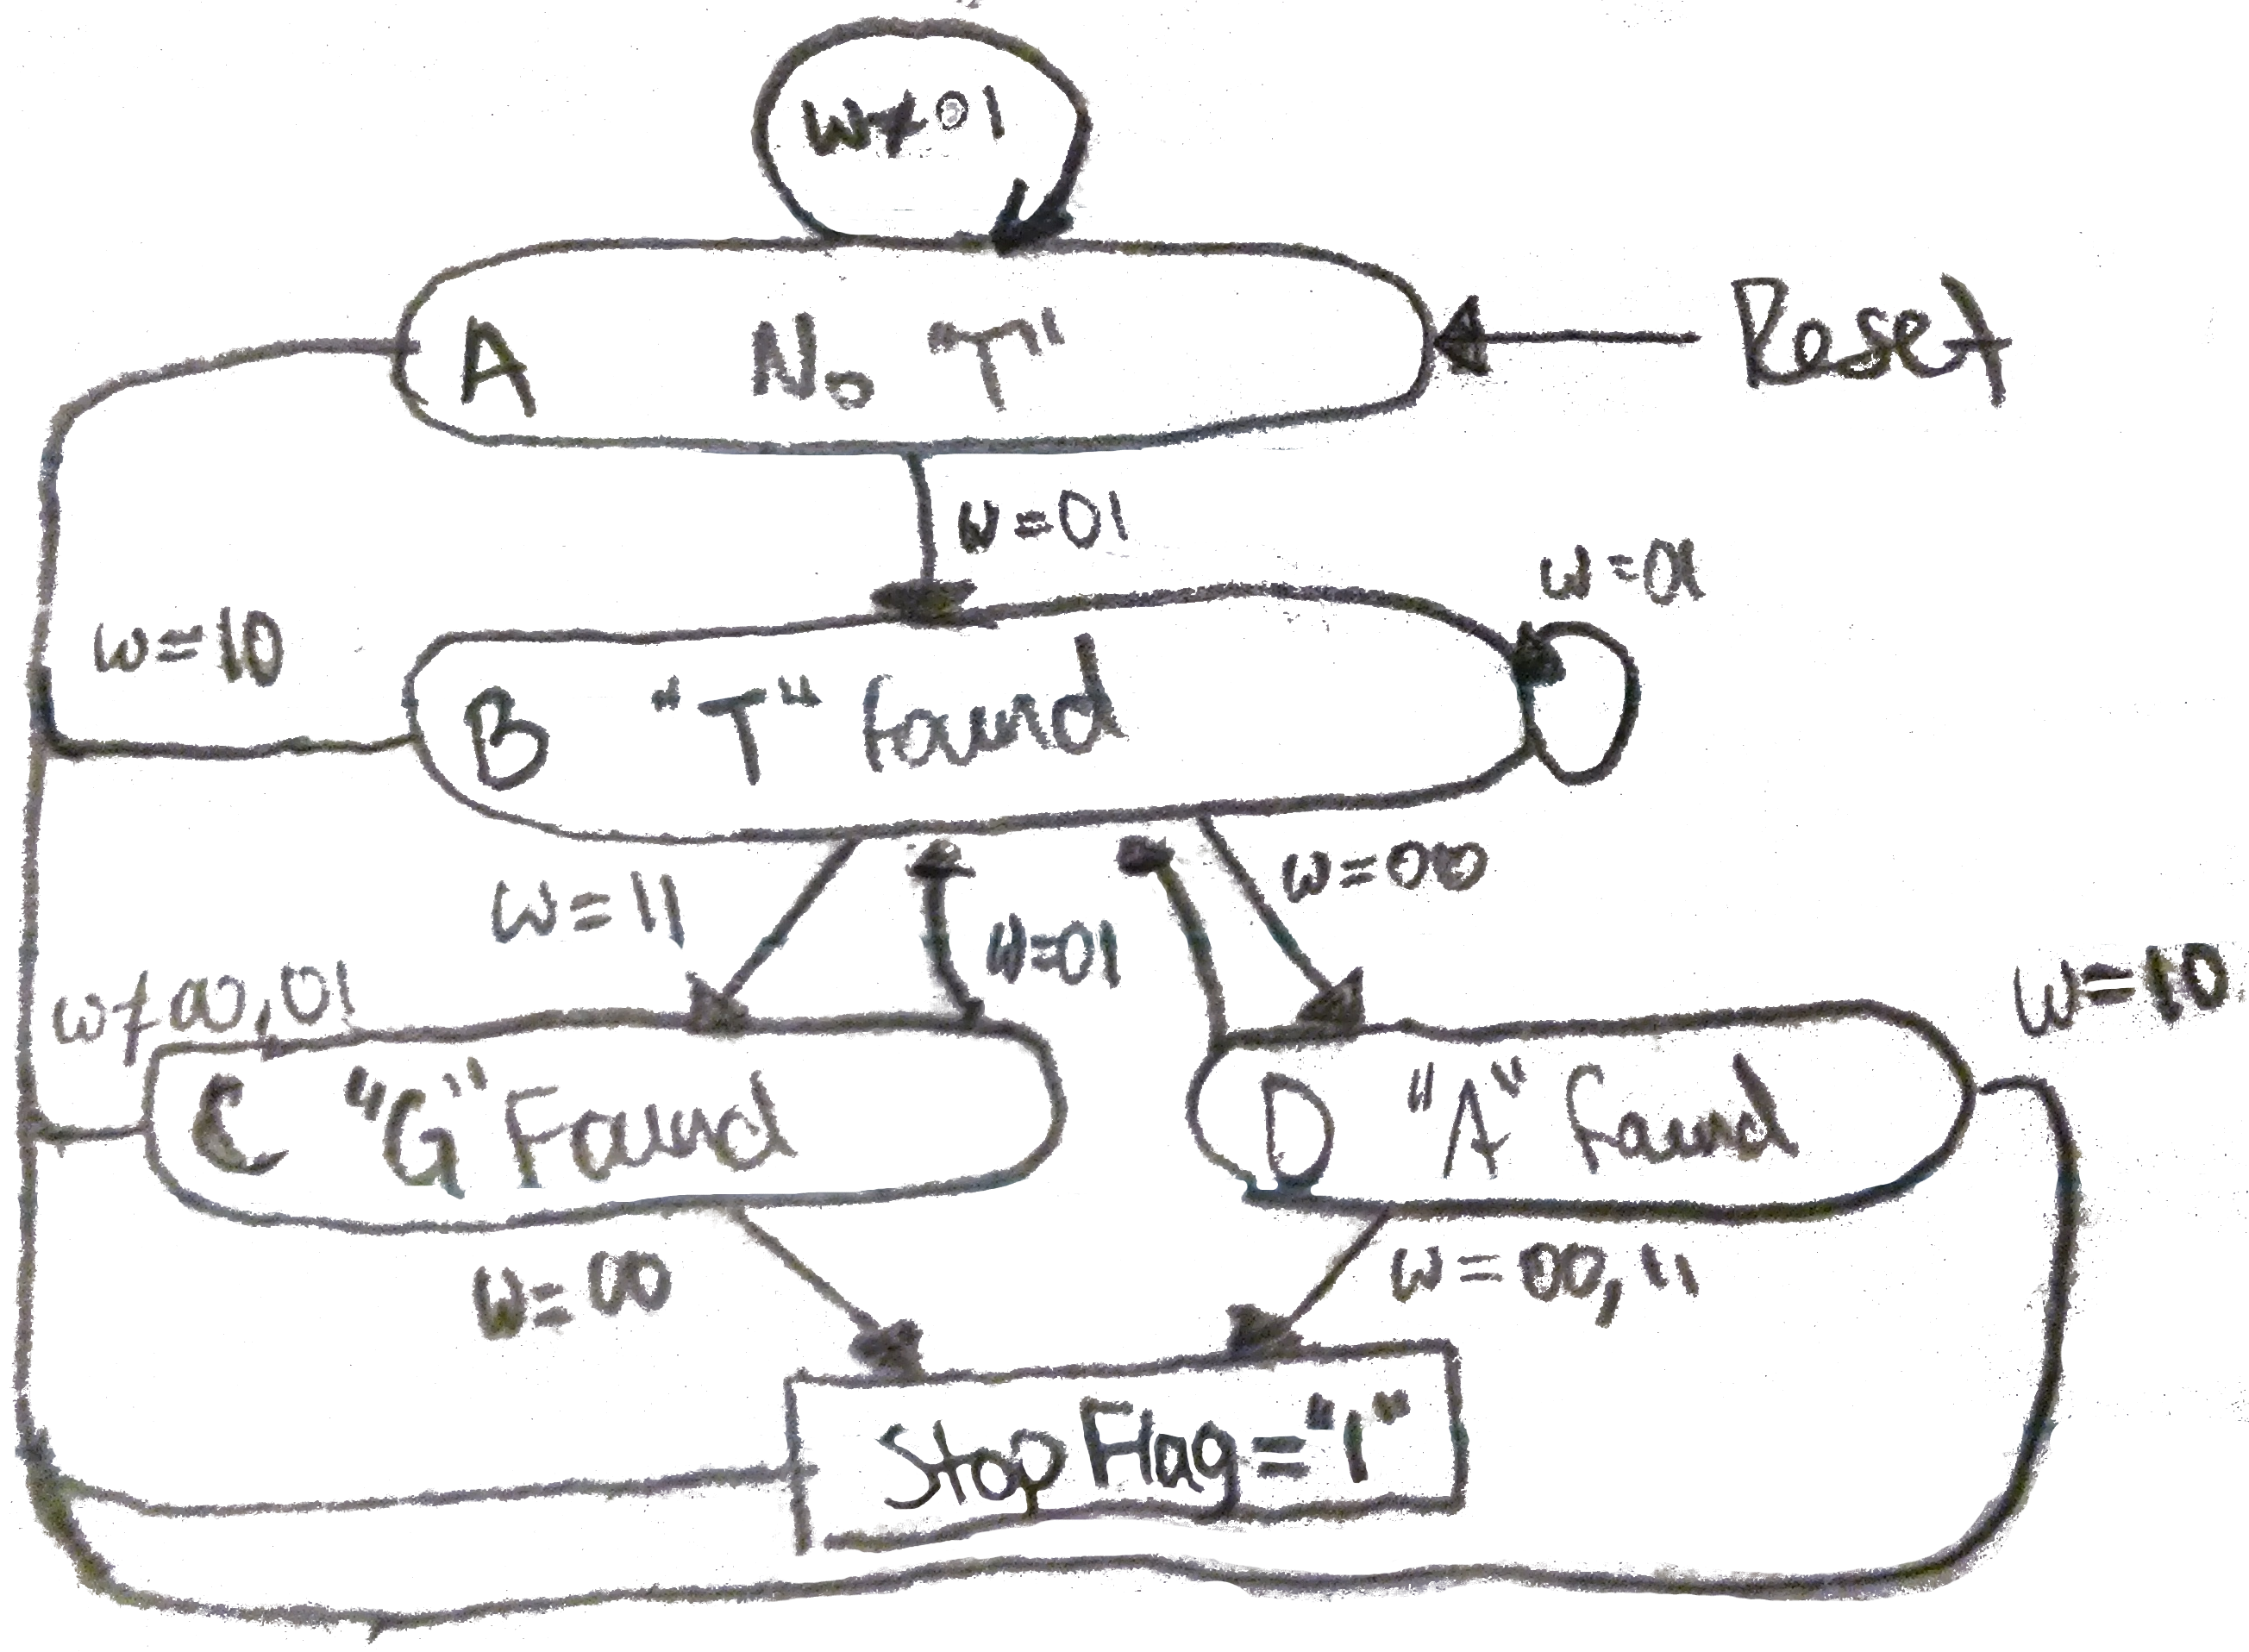 W≠01
A No "T"
Reset
W=01
W=01
W=10
B "T" found
W=11
W=00
W=01
W≠00,01
W=10
C "G" Found
D "A" found
W=00
W=00,11
Stop Flag="1"